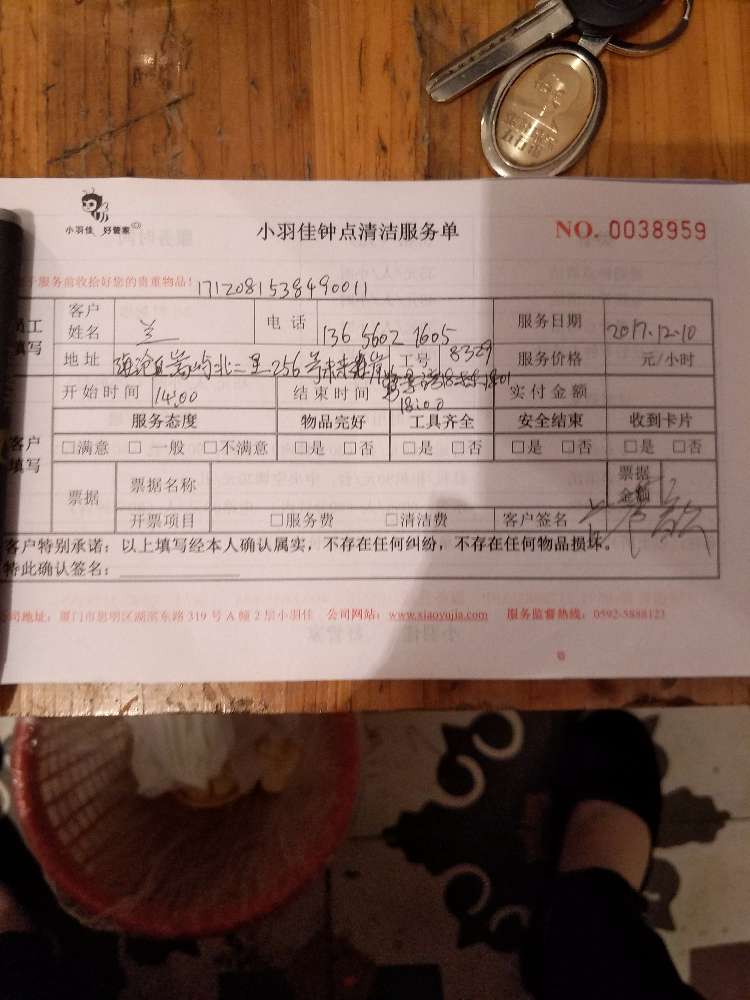 小羽佳 好管家
小羽佳钟点清洁服务单
NO. 0038959
服务前收拾好您的贵重物品！ 1712081538490011
员工填写 客户姓名 兰 电话 136 5602 1605 服务日期 2017.12.10
地址 256号 工号 8329 服务价格 元/小时
开始时间 14:00 结束时间 18:00 实付金额
服务态度 物品完好 工具齐全 安全结束 收到卡片
客户填写 □满意 □一般 □不满意 □是 □否 □是 □否 □是 □否 □是 □否
票据 票据名称 票据金额
开票项目 □服务费 □清洁费 客户签名
客户特别承诺：以上填写经本人确认属实，不存在任何纠纷，不存在任何物品损坏。
特此确认签名：
公司地址：厦门市思明区湖滨东路 319 号 A 幢 2 层小羽佳 公司网站：www.xiaoyujia.com 服务监督热线：0592-5888123